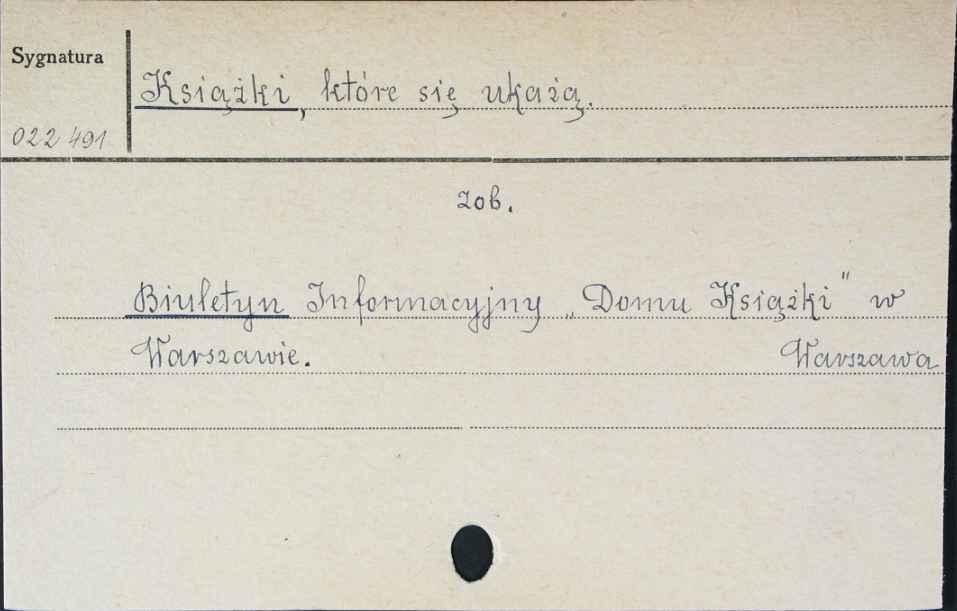 Sygnatura
Książki, które się ukażą.
022 491
zob.
Biuletyn Informacyjny „Domu Książki" w
Warszawie. Warszawa